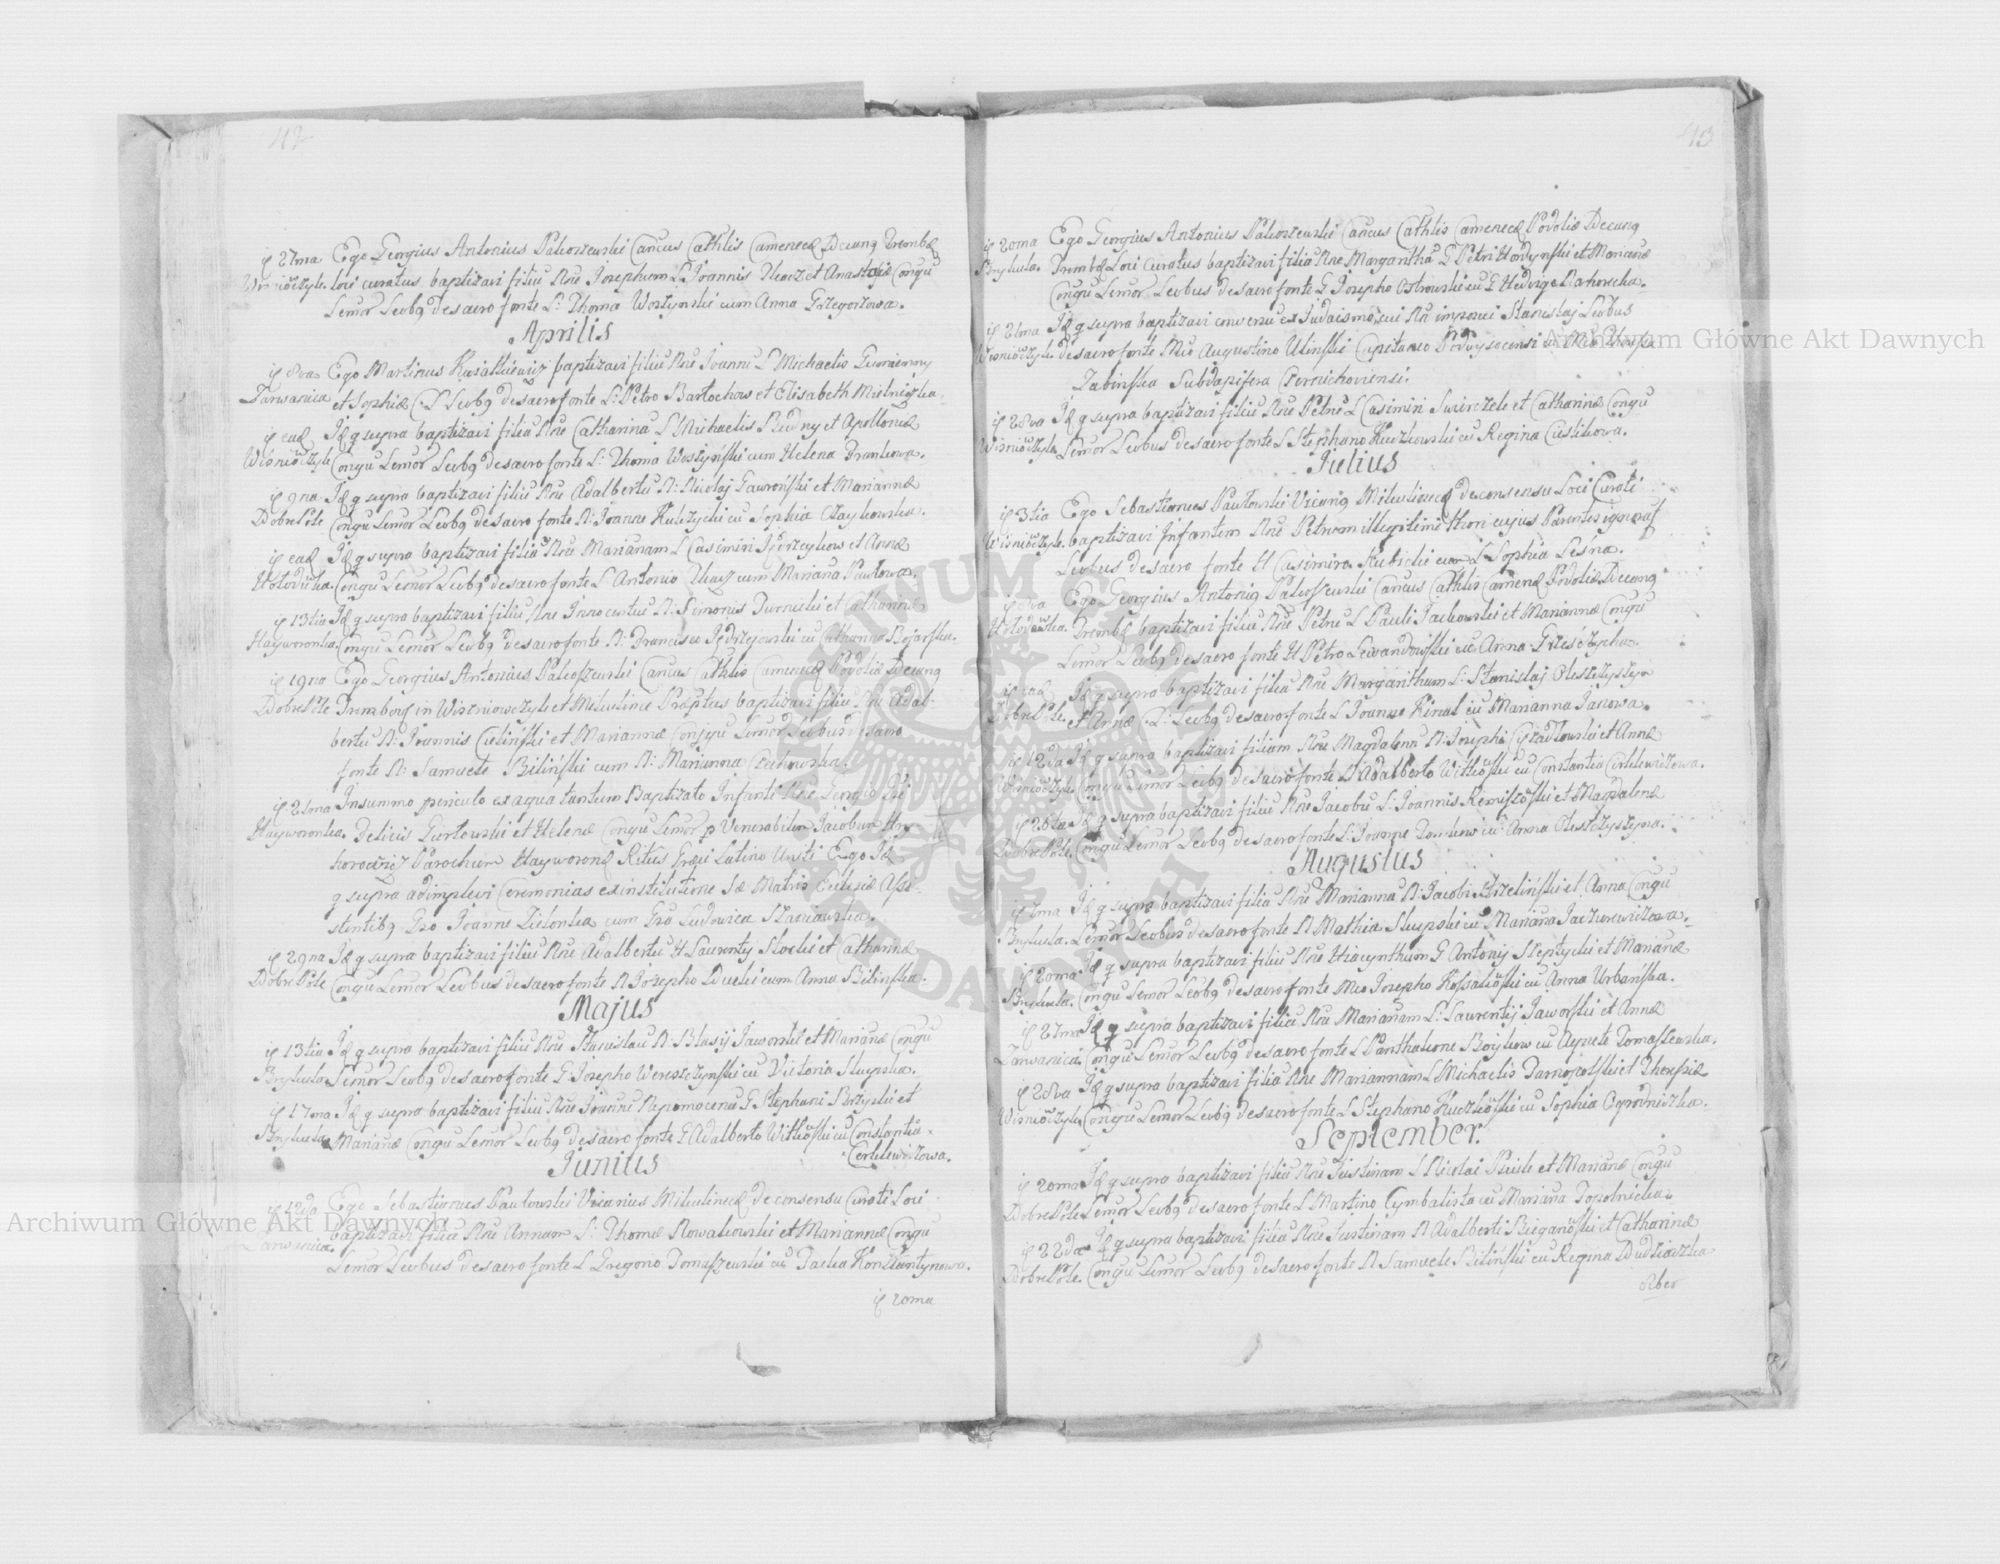 42
ip 27ma Ego Georgius Antonius Paleoszewski Cancus Cathlis Camenecæ Decang Trembæ
Wisniowczyk loci curatus baptizavi filiu Nne Josephum L: Joannis Tkacz et Anastasiæ Congu
Lemor Levbq de sacro fonte L: Thoma Wostynski cum Anna Grzegorzowa.
Aprilis
ip 8va Ego Martinus Kwiatkiewicz baptizavi filiu Nne Joannu L Michaelis
Zarwanica et Sophiæ C: L Levbq de sacro fonte L: Petro Bartochow et Elisabeth Mielniczka.
ip eadē Idē q supra baptizavi filia Nne Catharina L Michaelis Biedny et Apolloniæ
Wisniowczyk Congu Lemor Levbq de sacro fonte L: Thoma Wostyński cum Helena Frankowa.
ip 9na Idē q supra baptizavi filiu Nne Adalbertu N: Nicolaj Gawroński et Mariannæ
DobrePole Congu Lemor Levbq de sacro fonte N: Joanne Kulczycki cu Sophia Czaykowska.
ip eadē Idē q supra baptizavi filia Nne Mariannam L Casimiri et Annæ
Hotodówka. Congu Lemor Levbq de sacro fonte L Antonio Tkacz cum Mariana Pawłowa.
ip 13tia Idē q supra baptizavi filiu Nne Innocentiu N: Simonis Turnicki et Catharinæ
Hayworonka. Congu Lemor Levbq de sacro fonte N: Francisco Jędrzejowski cu Catharina Bojarska.
ip 19na Ego Georgius Antonius Paleoszewski Cancus Cathlis Camenecæ Podoliæ Decang
DobrePole Tremboq in Wiszniowczyk et Milustince Præptus baptizavi filiu Nne Adal-
bertu N: Joannis Culiński et Mariannæ Conjgu Lemor Levbus de sacro
fonte N: Samuele Biliński cum N: Marianna Czechowska.
ip 21ma In summo periculo ex aqua tantum Baptizato Infanti Nne Georgio
Hayworonka. Felicis Gurtowski et Helenæ Congu Lemor p Venerabilem Jacobum
Parochum Hayworonæ Ritus Græci Latino Uniti Ego Idē
q supra adimplevi Ceremonias ex institutione Sæ Matris Ecclesiæ Assi-
stentibq Gso Joanne Zielonka cum Gsa Ludovica Staniawska.
ip 29na Idē q supra baptizavi filiu Nne Adalbertu H Laurenty Slocki et Catharinæ
DobrePole Congu Lemor Levbus de sacro fonte N Josepho Ducki cum Anna Bilińska.
Majus
ip 13tia Idē q supra baptizavi filiu Nne Stanislau N: Blasij Jaworski et Marianæ Congu
Brykula Lemor Levbq de sacro fonte G: Josepho Wereszczyński cu Victoria Słupska.
ip 17ma Idē q supra baptizavi filiu Nne Joannu Nepomocenu G Stephani Brzyski et
Brykula Marianæ Congu Lemor Levbq de sacro fonte G Adalberto Witkoski cu Constantia
Cerkiewiczowa.
Junius
ip 12da Ego Sebastianus Pawłowski Vicarius Milustinecæ de consensu Curati Loci
Zarwanica. baptizavi filia Nne Annam L: Thomæ Nowakowski et Mariannæ Congu
Lemor Levbus de sacro fonte L Gregorio Tomaszewski cu Paska Konstantynowa.
ip 20ma
43
ip 20ma Ego Georgius Antonius Paleoszewski Cancus Cathlis Camenecæ Podoliæ Decang
Brykula. Trembq Loci Curatus baptizavi filia Nne Margaritha G Petri Hordyński et Marianæ
Congu Lemor Levbus de sacro fonte G Josepho Ostrowski cu G Hedvige Lahocka.
ip 21ma Idē q supra baptizavi conversu ex Judaismo, cui Nn imposui Stanislaj Levbus
Wisniowczyk de sacro fonte Mco Augustino Uliński Capitaneo Podwysocensi cu Mca Theresa
Zabinska Subdapifera Czernichoviensi.
ip 28va Idē q supra baptizavi filiu Nne Petru L Casimiri Swierczek et Catharinæ Congu
Wisniowczyk. Lemor Levbus de sacro fonte L Stephano Kuczkowski cu Regina Cieślikowa.
Julius
ip 3tia Ego Sebastianus Pawłowski Vicariq Milustinecæ de consensu Loci Curati
Wisniowczyk. baptizavi Infantem Nne Petrum illegitimi thori cujus Parentes ignorat
Levbus de sacro fonte H Casimiro Kubicki cum L Sophia Leśna.
ip 8va Ego Georgius Antoniq Paleoszewski Cancus Cathlis Camenæ Podoliæ Decanq
Hotodówka. Trembq baptizavi filiu Nne Petru L Pauli Jackowski et Mariannæ Congu
Lemor Levbq de sacro fonte H Petro Lewandowski cu Anna Grześczycka.
ip eadē Idē q supra baptizavi filia Nne Margaritham L: Stanislaj
DobrePole. et Annæ C. L: Levbq de sacro fonte L Joanne Kinal cu Marianna Janowa.
ip 12da Idē q supra baptizavi filiam Nne Magdalena N: Josephi Gradkowski et Annæ
Wisniowczyk Congu Lemor Levbq de sacro fonte L: Adalberto Witkoski cu Constantia Cerkiewiczowa.
ip 26ta Idē q supra baptizavi filiu Nne Jacobu L: Joannis Remiszoski et Magdalenæ
DobrePole. Congu Lemor Levbq de sacro fonte L: Joanne cu Anna
Augustus
ip 7ma Idē q supra baptizavi filia Nne Marianna N: Jacobi Strzeliński et Anna Congu
Brykula. Lemor Levbus de sacro fonte N Mathia Słupski cu Mariana Jaczurewiczowa.
ip 20ma Idē q supra baptizavi filiu Nne Hiacynthum G Antonij Steptycki et Marianæ
Brykula. Congu Lemor Levbq de sacro fonte Mco Josepho Kossakoski cu Anna Urbańska.
ip 27ma Idē q supra baptizavi filia Nne Mariannam L: Laurentij Jaworski et Annæ
Zarwanica. Congu Lemor Levbq de sacro fonte L Panthaleone Boykow cu Agnete Tomaszewska.
ip 28va Idē q supra baptizavi filia Nne Mariannam L Michaelis Tarnopolski et Theresiæ
Wisniowczyk Congu Lemor Levbq de sacro fonte L Stephano Kuczkoski cu Sophia Ogrodniczka.
September.
ip 20ma Idē q supra baptizavi filia Nne Justinam L Nicolai et Marianæ Congu
DobrePole Lemor Levbq de sacro fonte L Martino Cymbalista cu Mariana Topolnicka
ip 22da Idē q supra baptizavi filia Nne Justinam N Adalberti Bieganoski et Catharinæ
DobrePole. Congu Lemor Levbq de sacro fonte N Samuele Biliński cu Regina Dudziaczka
8ber
ARCHIWUM GŁÓWNE AKT DAWNYCH
Archiwum Główne Akt Dawnych
Archiwum Główne Akt Dawnych